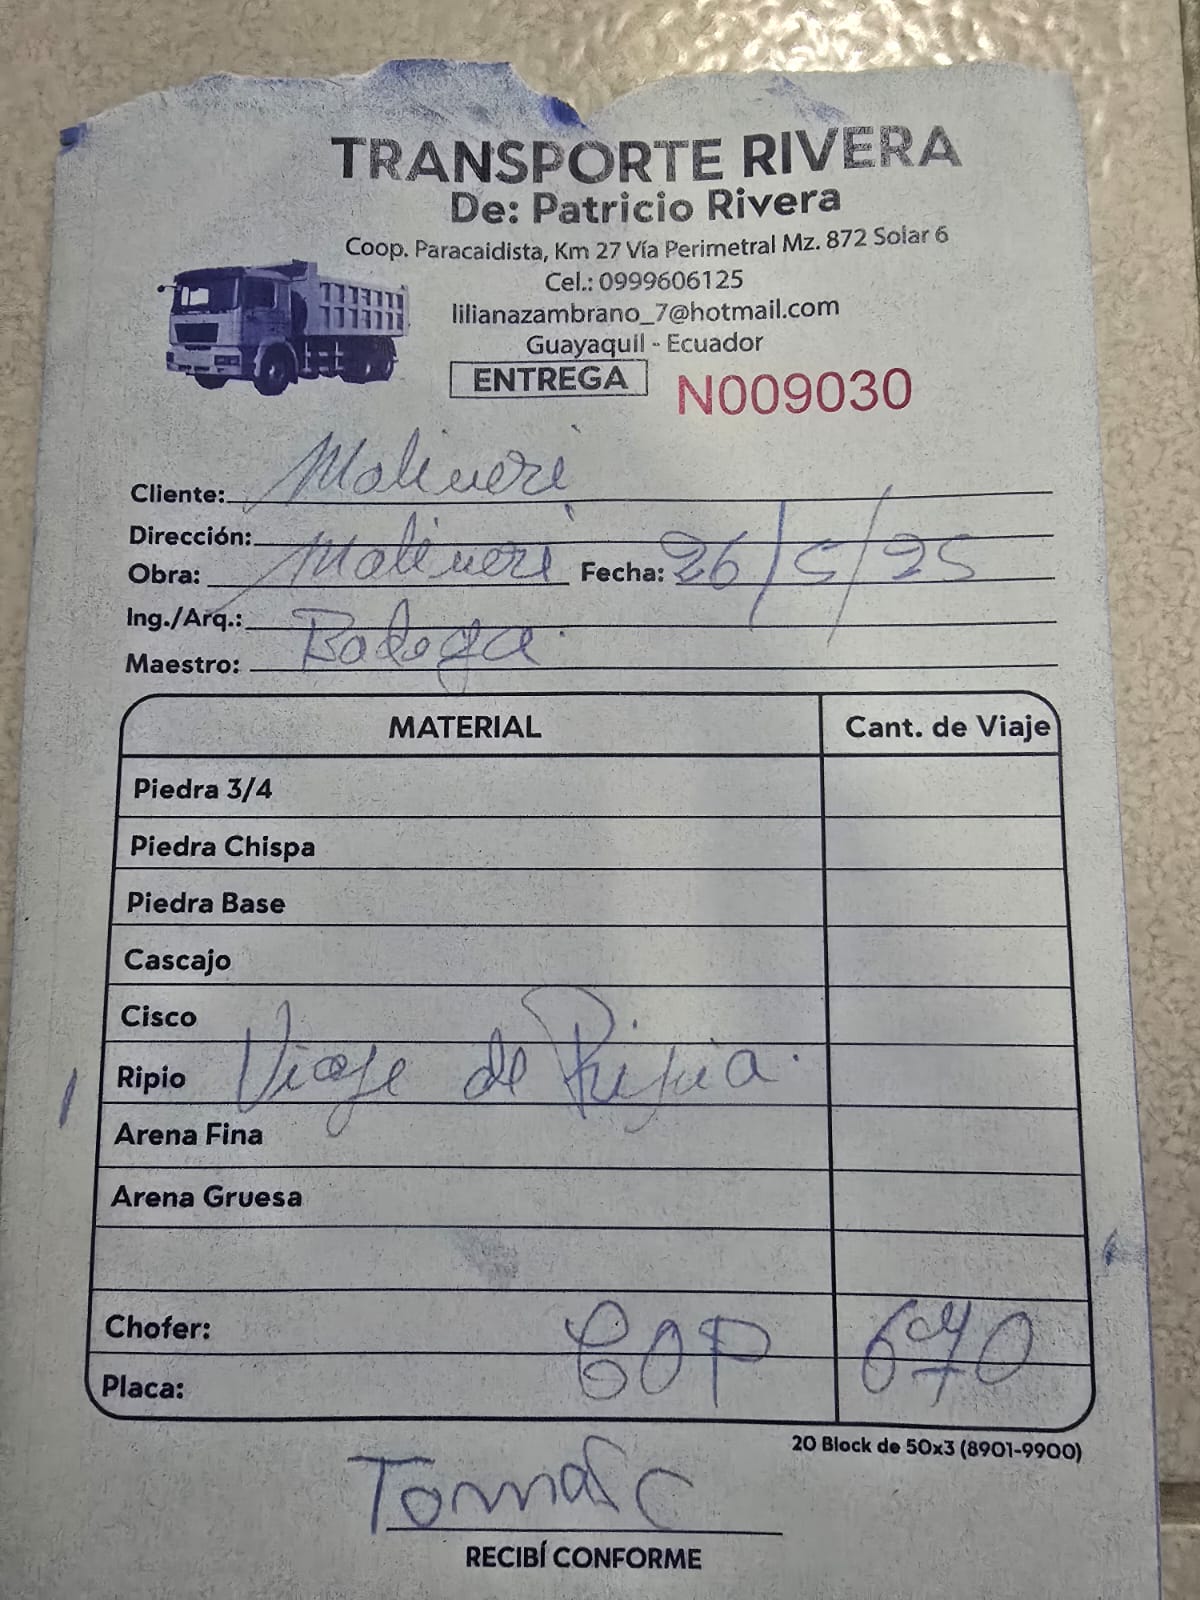 TRANSPORTE RIVERA
De: Patricio Rivera
Coop. Paracaidista, Km 27 Vía Perimetral Mz. 872 Solar 6
Cel.: 0999606125
lilianazambrano_7@hotmail.com
Guayaquil - Ecuador
ENTREGA N009030
Cliente: Malineri
Dirección:
Obra: Malineri Fecha: 26/5/25
Ing./Arq.:
Maestro: Bodega
MATERIAL Cant. de Viaje
Piedra 3/4
Piedra Chispa
Piedra Base
Cascajo
Cisco
Ripio Viaje de
Arena Fina
Arena Gruesa
Chofer:
Placa: 670
20 Block de 50x3 (8901-9900)
RECIBÍ CONFORME